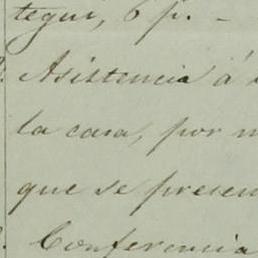 tegui, 6 p. -
Asistencia á
la casa, por
que se presen
Conferencia